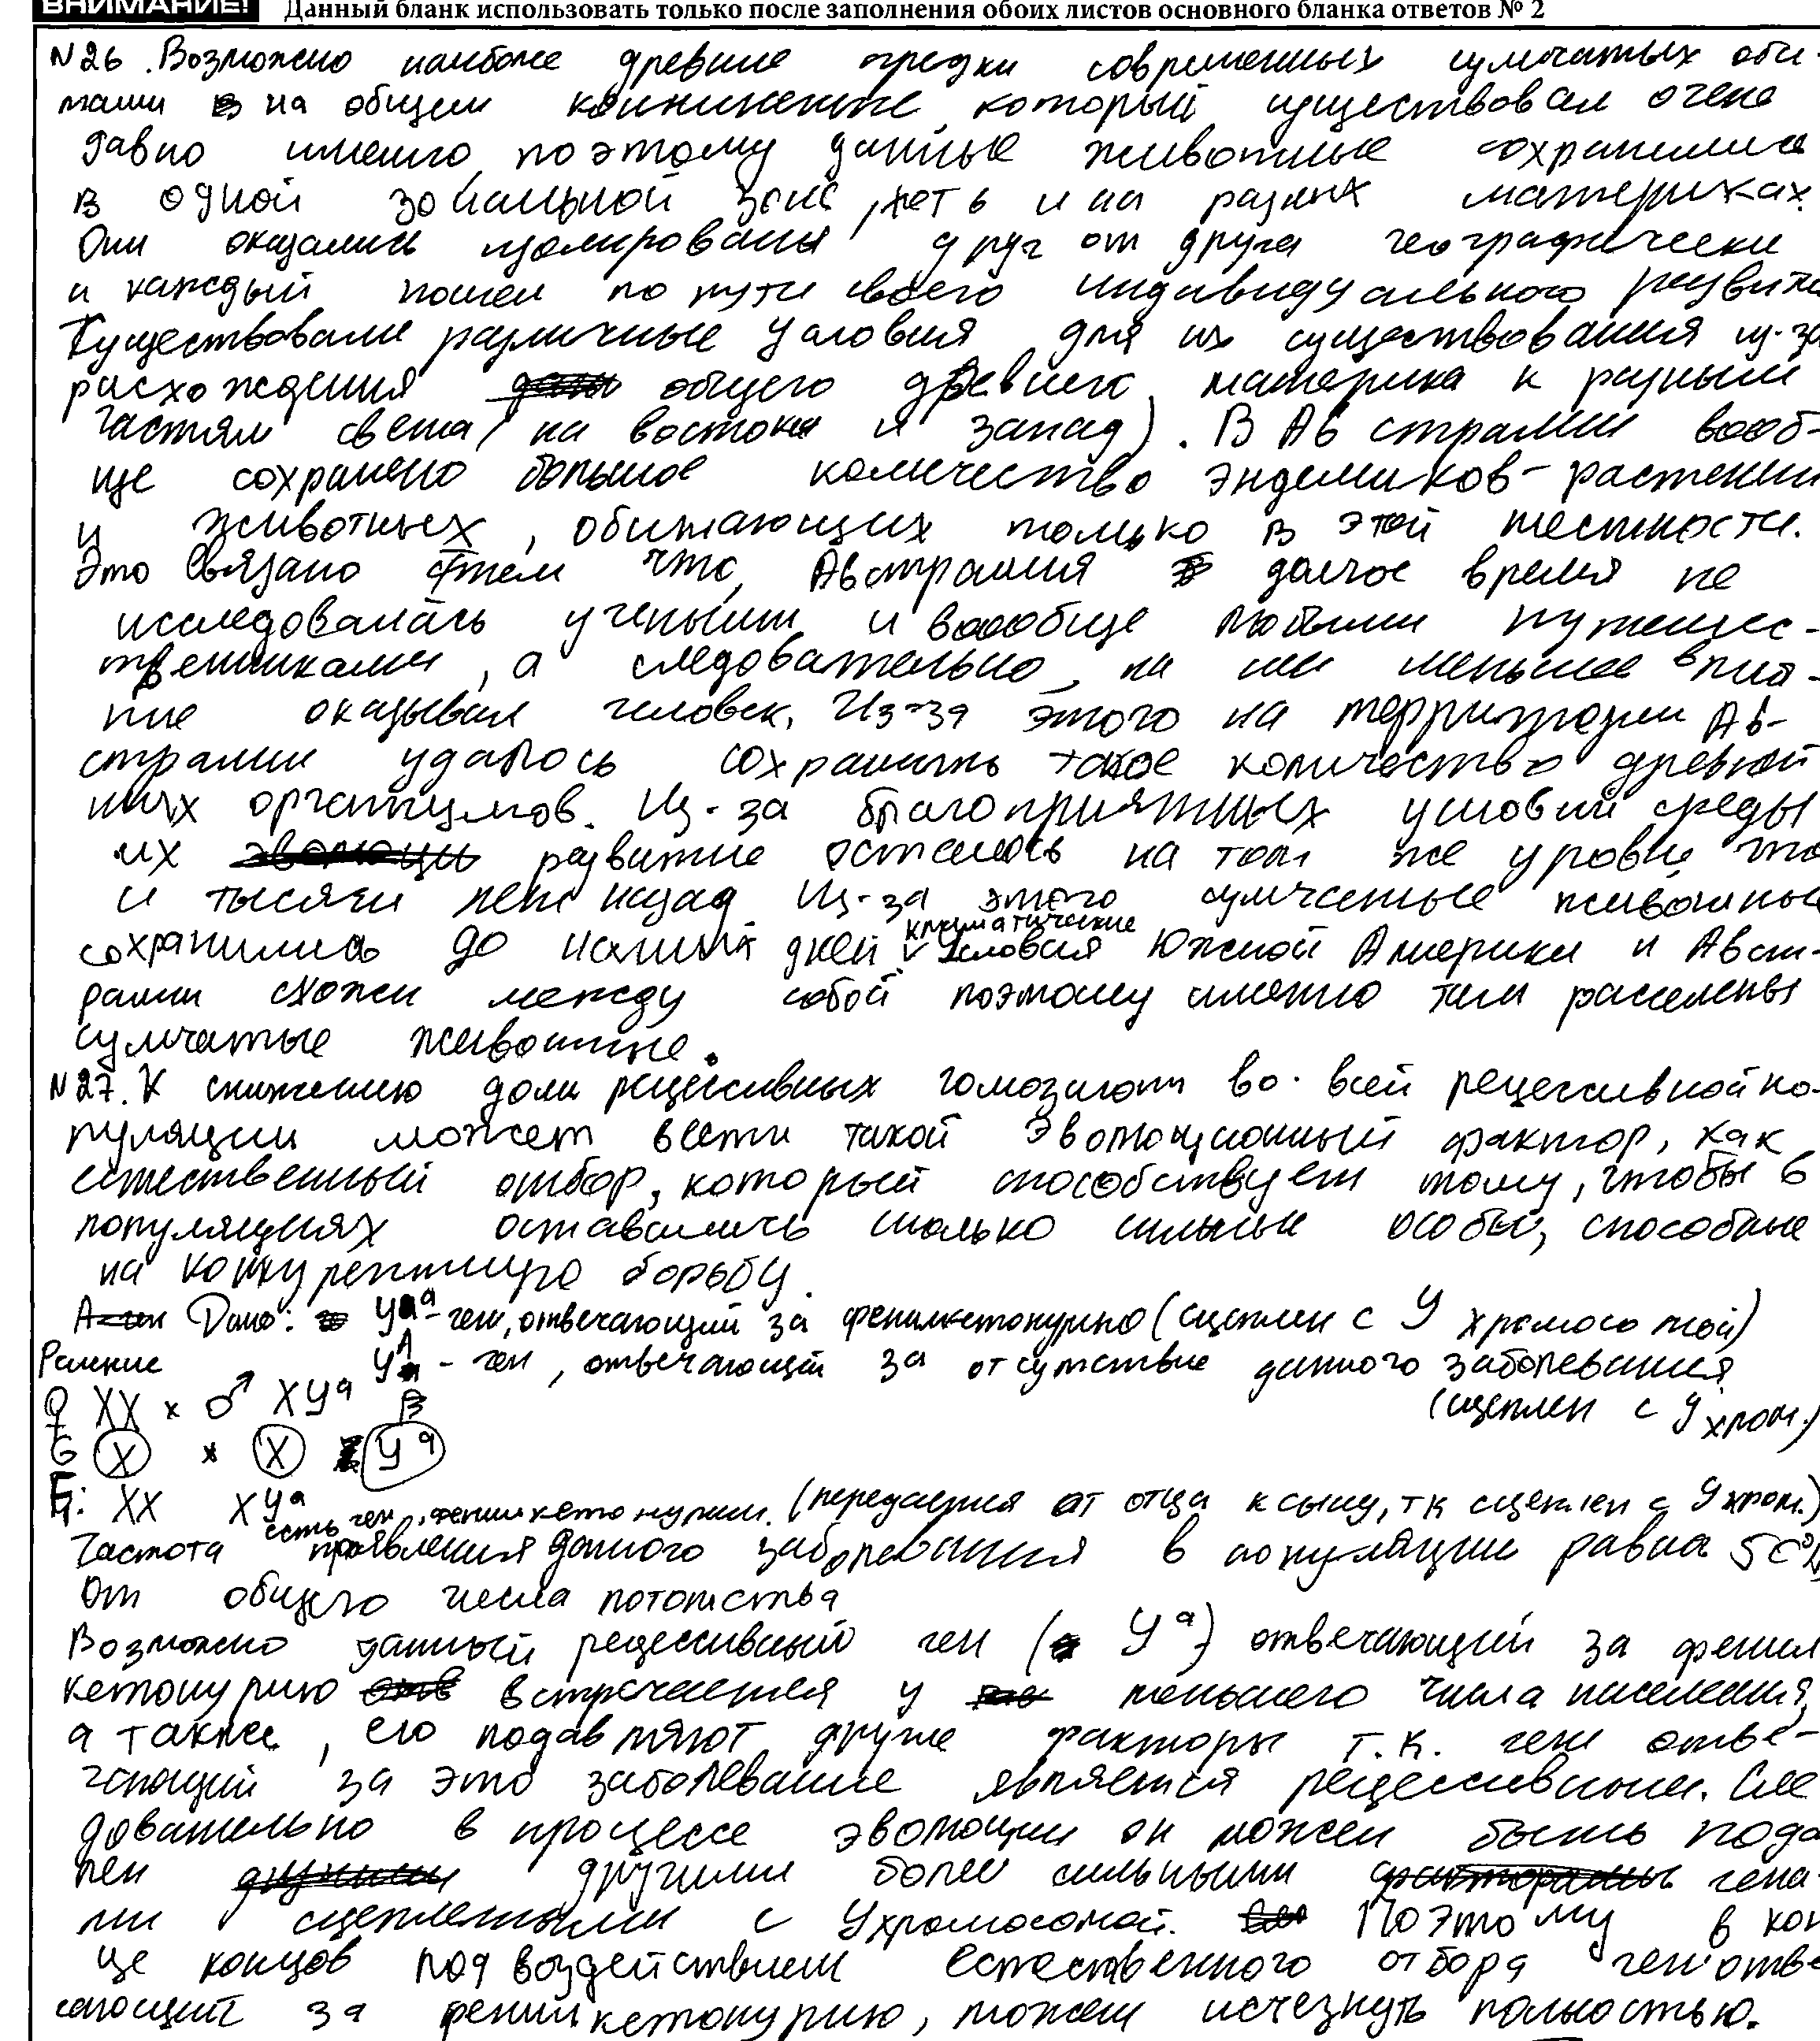 ВНИМАНИЕ! Данный бланк использовать только после заполнения обоих листов основного бланка ответов № 2
N26. Возможно наиболее древние предки современных сумчатых оби-
тали на общем континенте, который существовал очень
давно именно поэтому данные животные сохранились
в одной зональной зоне, хоть и на разных материках.
Они оказались изолированы друг от друга географически
и каждый пошел по пути своего индивидуального развити
Существовали различные условия для их существования из-за
расхождения общего древнего материка к разным
частям света (на востоки и запад). В Австралии вооб-
ще сохранено большое количество эндемиков-растений
и животных, обитающих только в этой местности.
Это связано с тем что, Австралия долгое время не
исследовалась учеными и воообще любыми путешес-
твенниками, а следовательно, на неи меньшее влия-
ние оказывал человек. Из-за этого на территории Ав-
стралии удалось сохранить такое количество древней
ших организмов. Из-за благоприятных условий среды
их развитие осталось на том же уровне, что
и тысячи лет назад. Из-за этого сумчатые животные
сохранились до наших дней. климатические условия Южной Америки и Авст-
ралии схожи между собой поэтому именно там расселены
сумчатые животные.
N27. К снижению доли рецессивных гомозигот во всей рецессивной по-
пуляции может вести такой эволюционный фактор, как
естественный отбор, который способствует тому, чтобы в
популяциях оставались только сильные особи, способные
на конкурентную борьбу.
Дано: Yᵃ - ген, отвечающий за фенилкетонурию (сцеплен с У хромосомой)
Решение Yᴬ - ген, отвечающий за отсутствие данного заболевания
(сцеплен с У хром.)
♀ XX × ♂ XYᵃ
G X × X Yᵃ
F₁: XX XYᵃ есть ген фенилкетонурии. (передается от отца к сыну, тк сцеплен с У хром.)
Частота проявления данного заболевания в популяции равна 50%
От общего числа потомства
Возможно данный рецессивный ген (Yᵃ) отвечающий за фенил
кетонурию встречается у меньшего числа населения,
а также, его подавляют другие факторы т.к. ген отве-
чающий за это заболевание является рецессивным. Сле
довательно в процессе эволюции он может быть пода
лен другими более сильными гена-
ми сцепленными с У хромосомой. Поэтому в кон
це концов под воздействием естественного отбора ген отве
чающий за фенилкетонурию, может исчезнуть полностью.